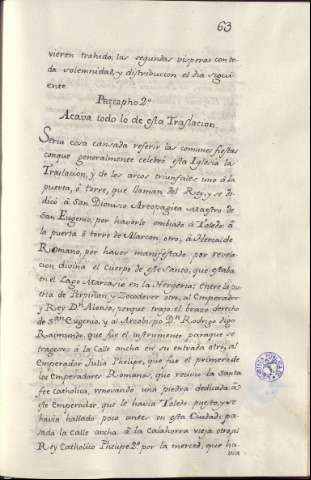 63
vieron trahido, las segundas visperas con to-
da solemnidad, y distribucion el dia sigui-
ente.
Parrapho 2º
Acava todo lo de esta Traslacion.
Seria cosa cansada referir las comunes fiestas
conque generalmente celebró esta Iglesia la
Traslacion, y de los arcos triunfales: uno á la
puerta, ó torre, que llaman del Rey, y se de-
dicó á San Dionisio Areopagita Maestro de
San Eugenio, por haverlo embiado á Toledo: á
la puerta ó torre de Alarcon otro, á Hercoldo
Romano, por haver manifestado por revela-
cion divina el Cuerpo de este Santo, que estaba
en el Lago Marcasio en la Hergeria: Entre la pu-
erta de Perpiñan, y Zocodover otro, al Emperador
y Rey Dn Alonso, porque trajo el brazo derecho
de Sn Eugenio, y al Arzobispo Dn Rodrigo digo
Raimundo, que fue el instrumento para que se
tragera: á la Calle ancha en su entrada otro, al
Emperador Julio Phelipe, que fue el primero de
los Emperadores Romanos, que recivio la Santa
fee catholica, renovando una piedra dedicada á
este Emperador, que le havia Toledo puesto, y se
havia hallado poco antes en esta Ciudad: pa-
sada la Calle ancha á la Calahorra vieja otro, al
Rey Catholico Phelipe 2º por la merced, que ha-
via